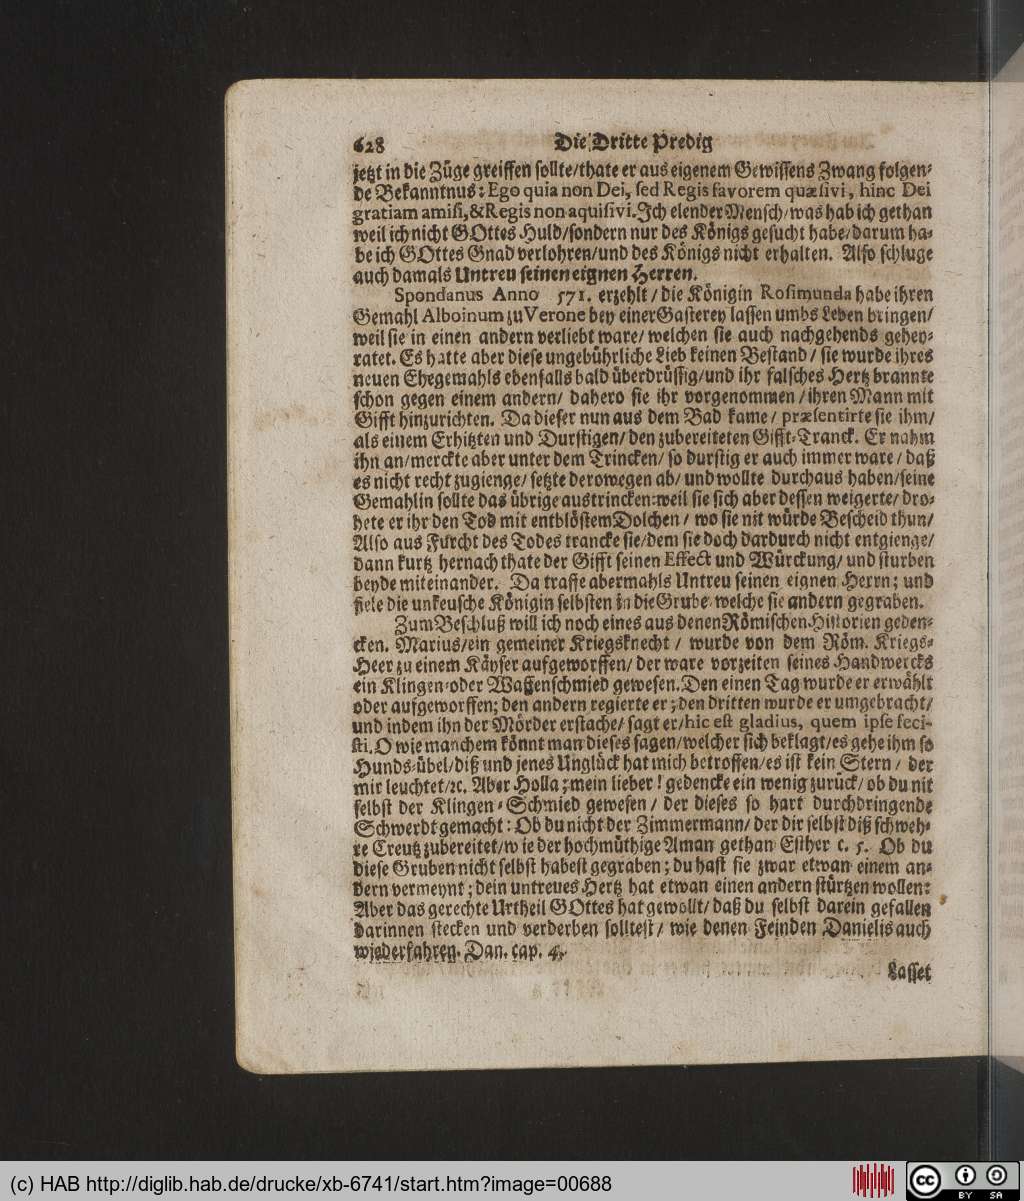 628 Die Dritte Predig
jetzt in die Züge greiffen sollte/thate er aus eigenem Gewissens Zwang folgen-
de Bekanntnus: Ego quia non Dei, sed Regis favorem quæsivi, hinc Dei
gratiam amisi, & Regis non aquisivi. Ich elender Mensch/was hab ich gethan
weil ich nicht GOttes Huld/sondern nur des Königs gesucht habe/darum ha-
be ich GOttes Gnad verlohren/und des Königs nicht erhalten. Also schluge
auch damals Untreu seinen eignen Herren.
Spondanus Anno 571. erzehlt/die Königin Rosimunda habe ihren
Gemahl Alboinum zu Verone bey einer Gasterey lassen umbs Leben bringen/
weil sie in einen andern verliebt ware/welchen sie auch nachgehends gehey-
ratet. Es hatte aber diese ungebührliche Lieb keinen Bestand/sie wurde ihres
neuen Ehegemahls ebenfalls bald überdrüssig/und ihr falsches Hertz brannte
schon gegen einem andern/dahero sie ihr vorgenommen/ihren Mann mit
Gifft hinzurichten. Da dieser nun aus dem Bad kame/præsentirte sie ihm/
als einem Erhitzten und Durstigen/den zubereiteten Gifft-Tranck. Er nahm
ihn an/merckte aber unter dem Trincken/so durstig er auch immer ware/daß
es nicht recht zugienge/setzte derowegen ab/und wollte durchaus haben/seine
Gemahlin sollte das übrige austrincken: weil sie sich aber dessen weigerte/dro-
hete er ihr den Tod mit entblöstem Dolchen/wo sie nit würde Bescheid thun/
Also aus Furcht des Todes trancke sie/dem sie doch dardurch nicht entgienge/
dann kurtz hernach thate der Gifft seinen Effect und Würckung/und sturben
beyde miteinander. Da traffe abermahls Untreu seinen eignen Herrn; und
fiele die unkeusche Königin selbsten in die Grube welche sie andern gegraben.
Zum Beschluß will ich noch eines aus denen Römischen Historien geden-
cken. Marius/ein gemeiner Kriegsknecht/wurde von dem Röm. Kriegs-
Heer zu einem Käyser aufgeworffen/der ware vorzeiten seines Handwercks
ein Klingen-oder Waffenschmied gewesen. Den einen Tag wurde er erwählt
oder aufgeworffen; den andern regierte er; den dritten wurde er umgebracht/
und indem ihn der Mörder erstache/sagt er/hic est gladius, quem ipse feci-
sti. O wie manchem könnt man dieses sagen/welcher sich beklagt/es gehe ihm so
Hunds-übel/diß und jenes Unglück hat mich betroffen/es ist kein Stern/der
mir leuchtet/ꝛc. Aber Holla; mein lieber! gedencke ein wenig zurück/ob du nit
selbst der Klingen-Schmied gewesen/der dieses so hart durchdringende
Schwerdt gemacht: Ob du nicht der Zimmermann/der dir selbst diß schweh-
re Creutz zubereitet/wie der hochmüthige Aman gethan Esther c. 5. Ob du
diese Gruben nicht selbst habest gegraben; du hast sie zwar etwan einem an-
dern vermeynt; dein untreues Hertz hat etwan einen andern stürtzen wollen:
Aber das gerechte Urtheil GOttes hat gewollt/daß du selbst darein gefallen
darinnen stecken und verderben solltest/wie denen Feinden Danielis auch
wiederfahren. Dan. cap. 4.
Lasset
(c) HAB http://diglib.hab.de/drucke/xb-6741/start.htm?image=00688
cc BY SA